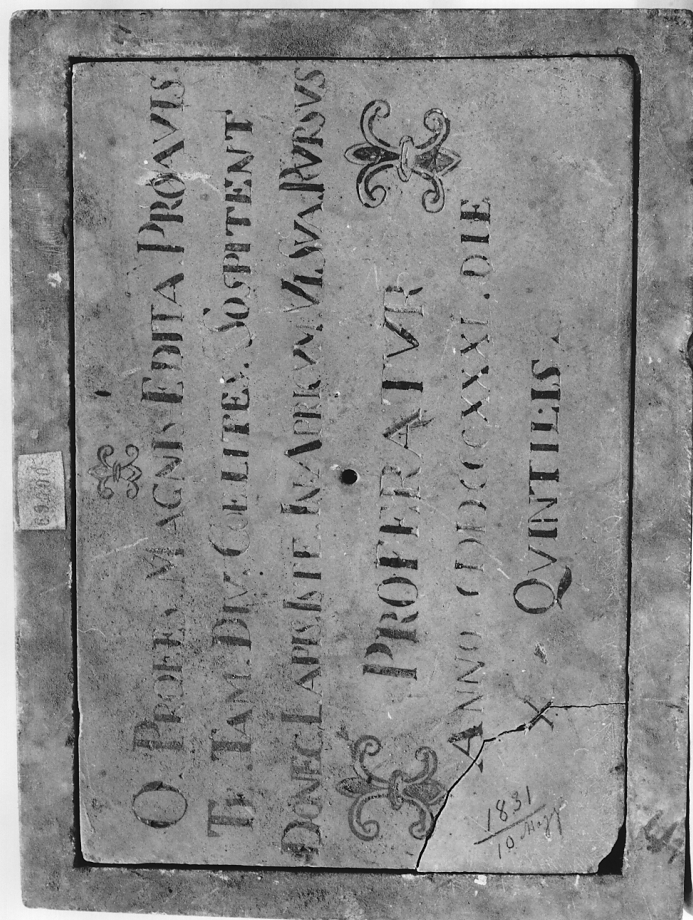 O PROFES MAGNIS EDITA PROAVIS
TE TAM. DIV. COELITES. SOSPITENT
DONEC LAPIS ISTE IN APRICVM VLSVA RVRSVS
PROFERATVR
ANNO. DIE
X QVINTILIS
1831
10